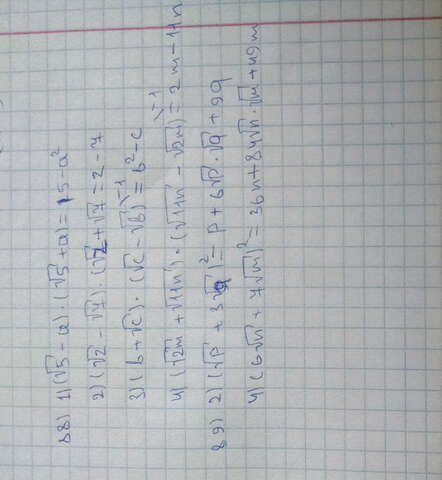 88) 1) (√5 - a) · (√5 + a) = 5 - a²
2) (√2 - √7) · (√2 + √7) = 2 - 7
3) (b + √c) · (√c - √b)^-1 = b² - c
4) (√2m + √11n) · (√11n - √2m)^-1 = 2m - 11n
89) 2) (√p + 3√q)² = p + 6√p · √q + 9q
4) (6√n + 7√m)² = 36n + 84√n · √m + 49m